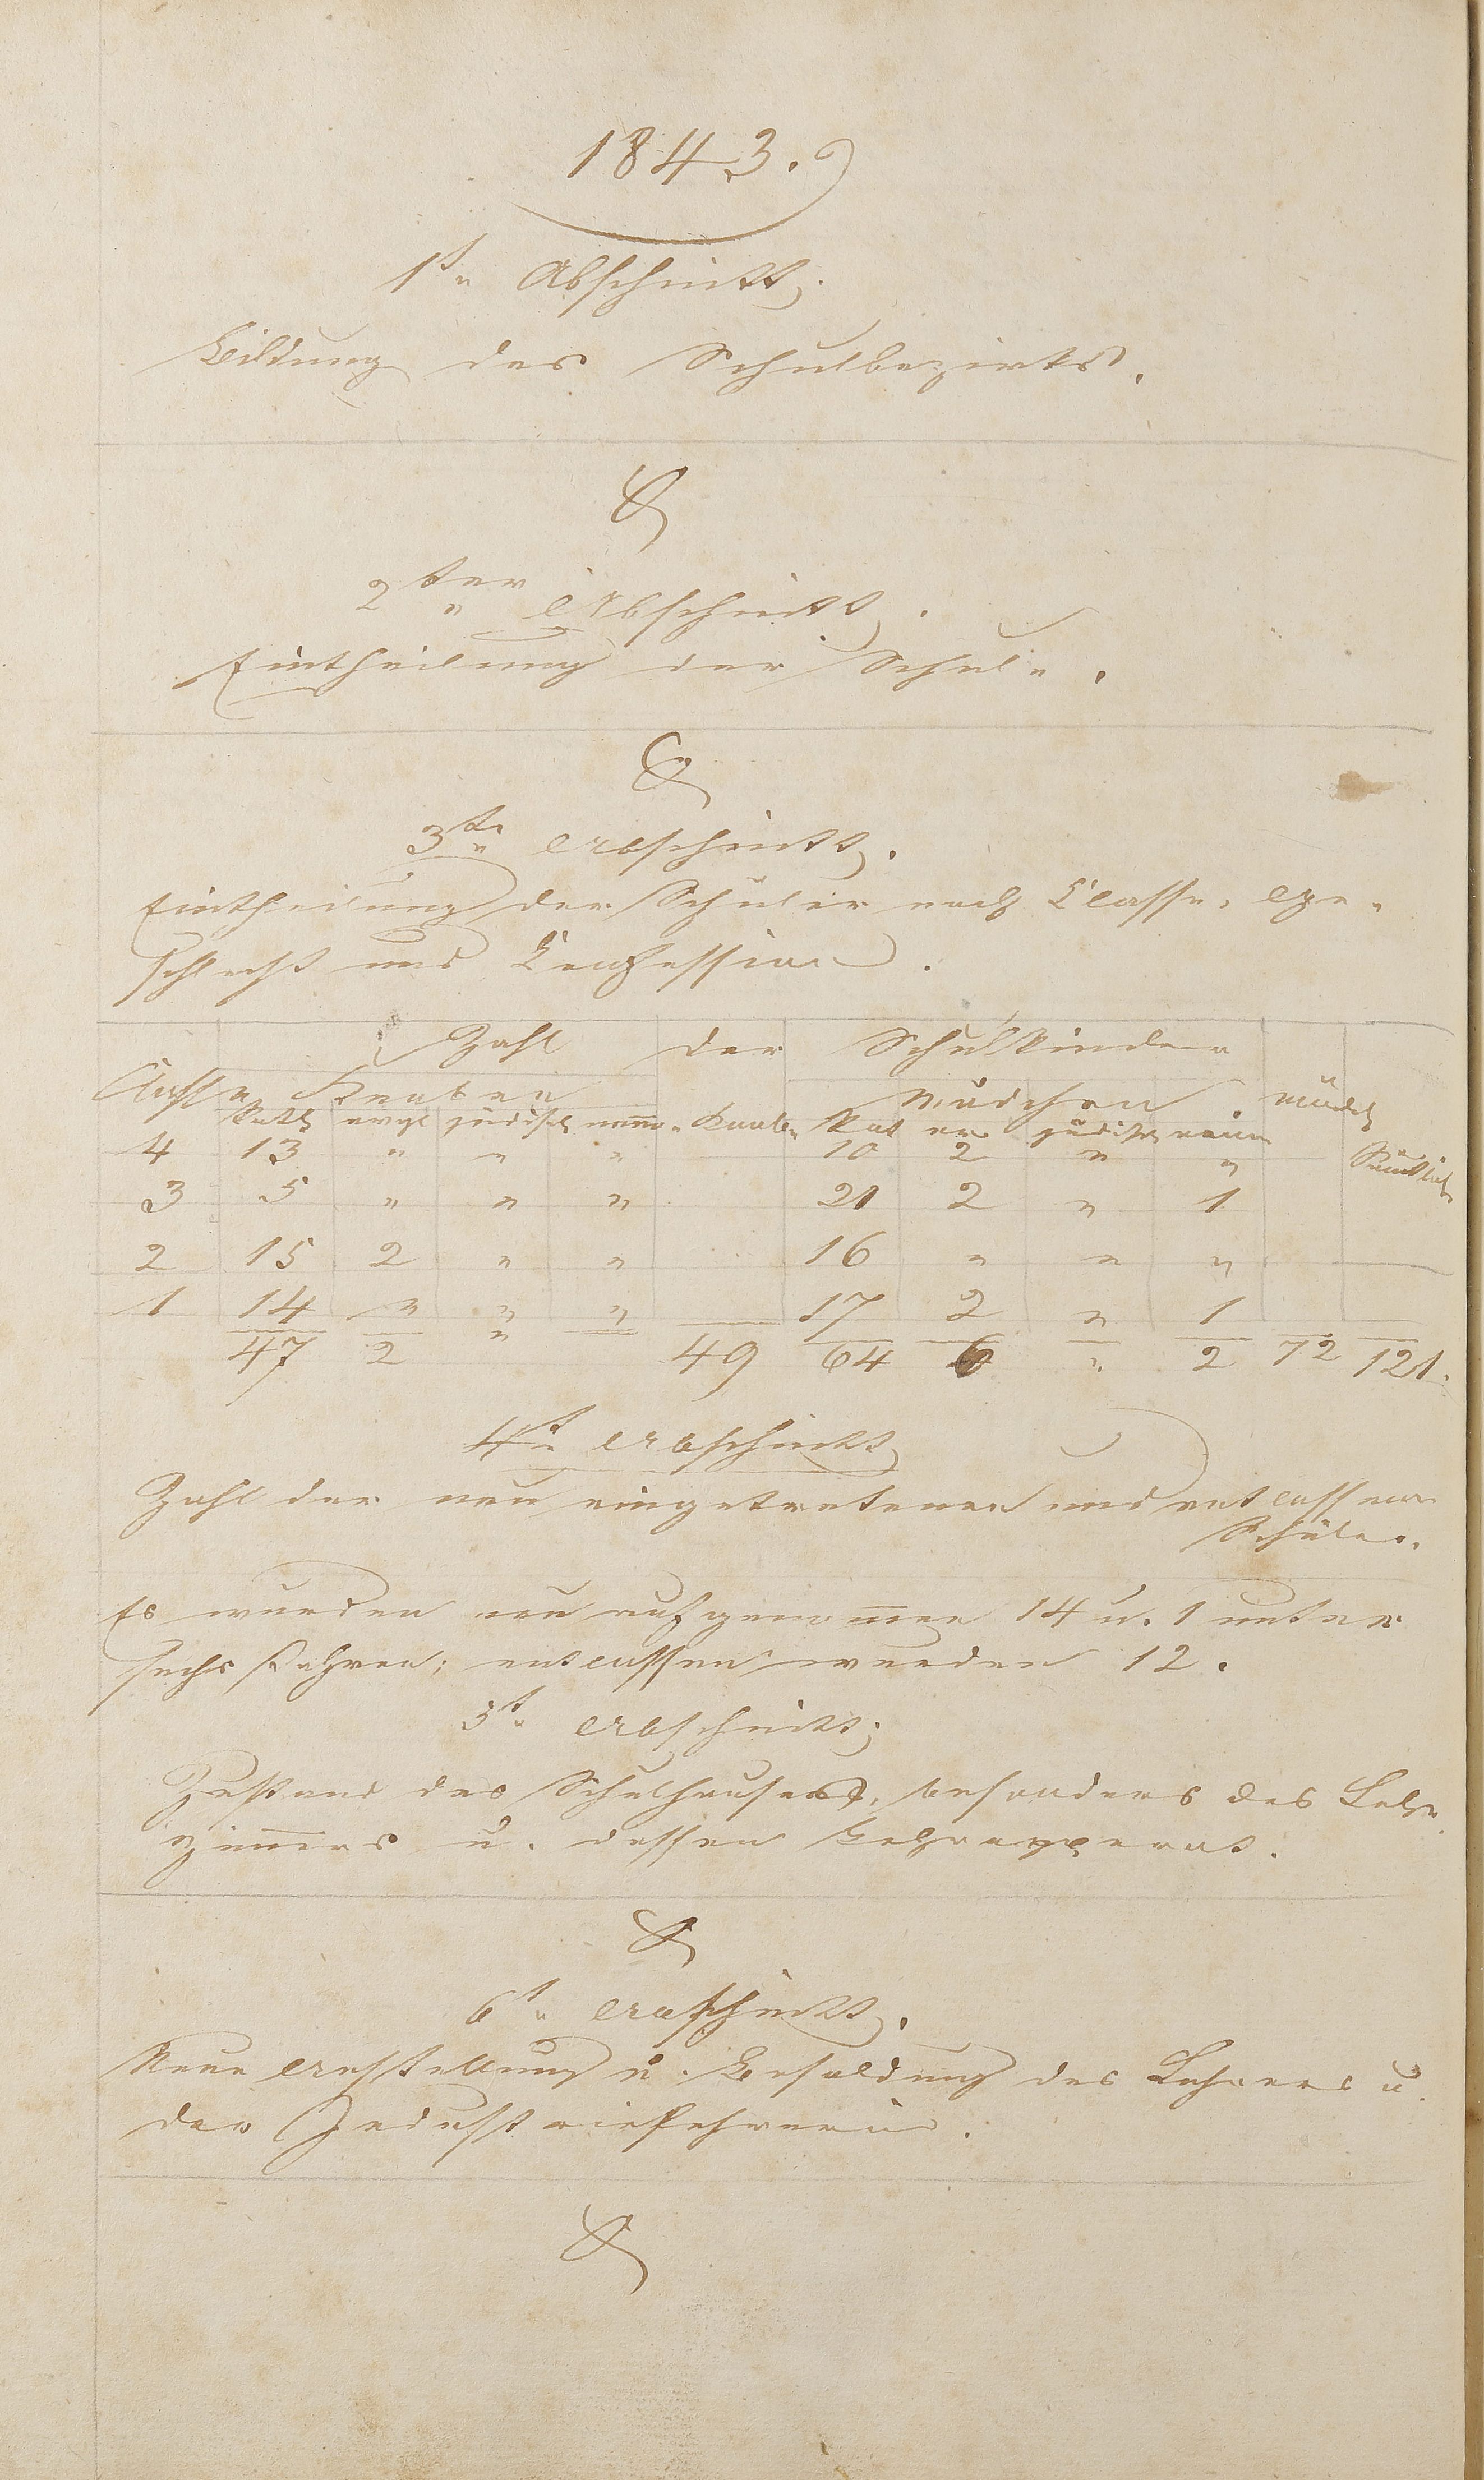 1843.
1te Abschnitt.
Bildung des Schulbezirks.
2ter Abschnitt.
Eintheilung der Schule.
3te Abschnitt.
Eintheilung der Schüler nach Classe, Ge-
schlecht und Confession.
Zahl der Schulkinder
Classe Knaben Mädchen Mädch
Kath evgl jüdisch menn. Knaben Kat ev jüdisch menn Sämtliche
4 13 " " " 10 2 " "
3 5 " " " 21 2 " 1
2 15 2 " " 16 " " "
1 14 " " " 17 2 " 1
47 2 " 49 64 6 " 2 72 121.
4te Abschnitt
Zahl der neu eingetretenen und entlassenen
Schüler.
Es wurden neu aufgenommen 14 u. 1 unter
sechs Jahren; entlassen wurden 12.
5te Abschnitt.
Zustand des Schulhauses, besonders des Lehr
zimmers u. dessen Lehrapparat.
6te Abschnitt.
Neue Anstellung u. Besoldung des Lehrers u.
der Industrielehrerin.